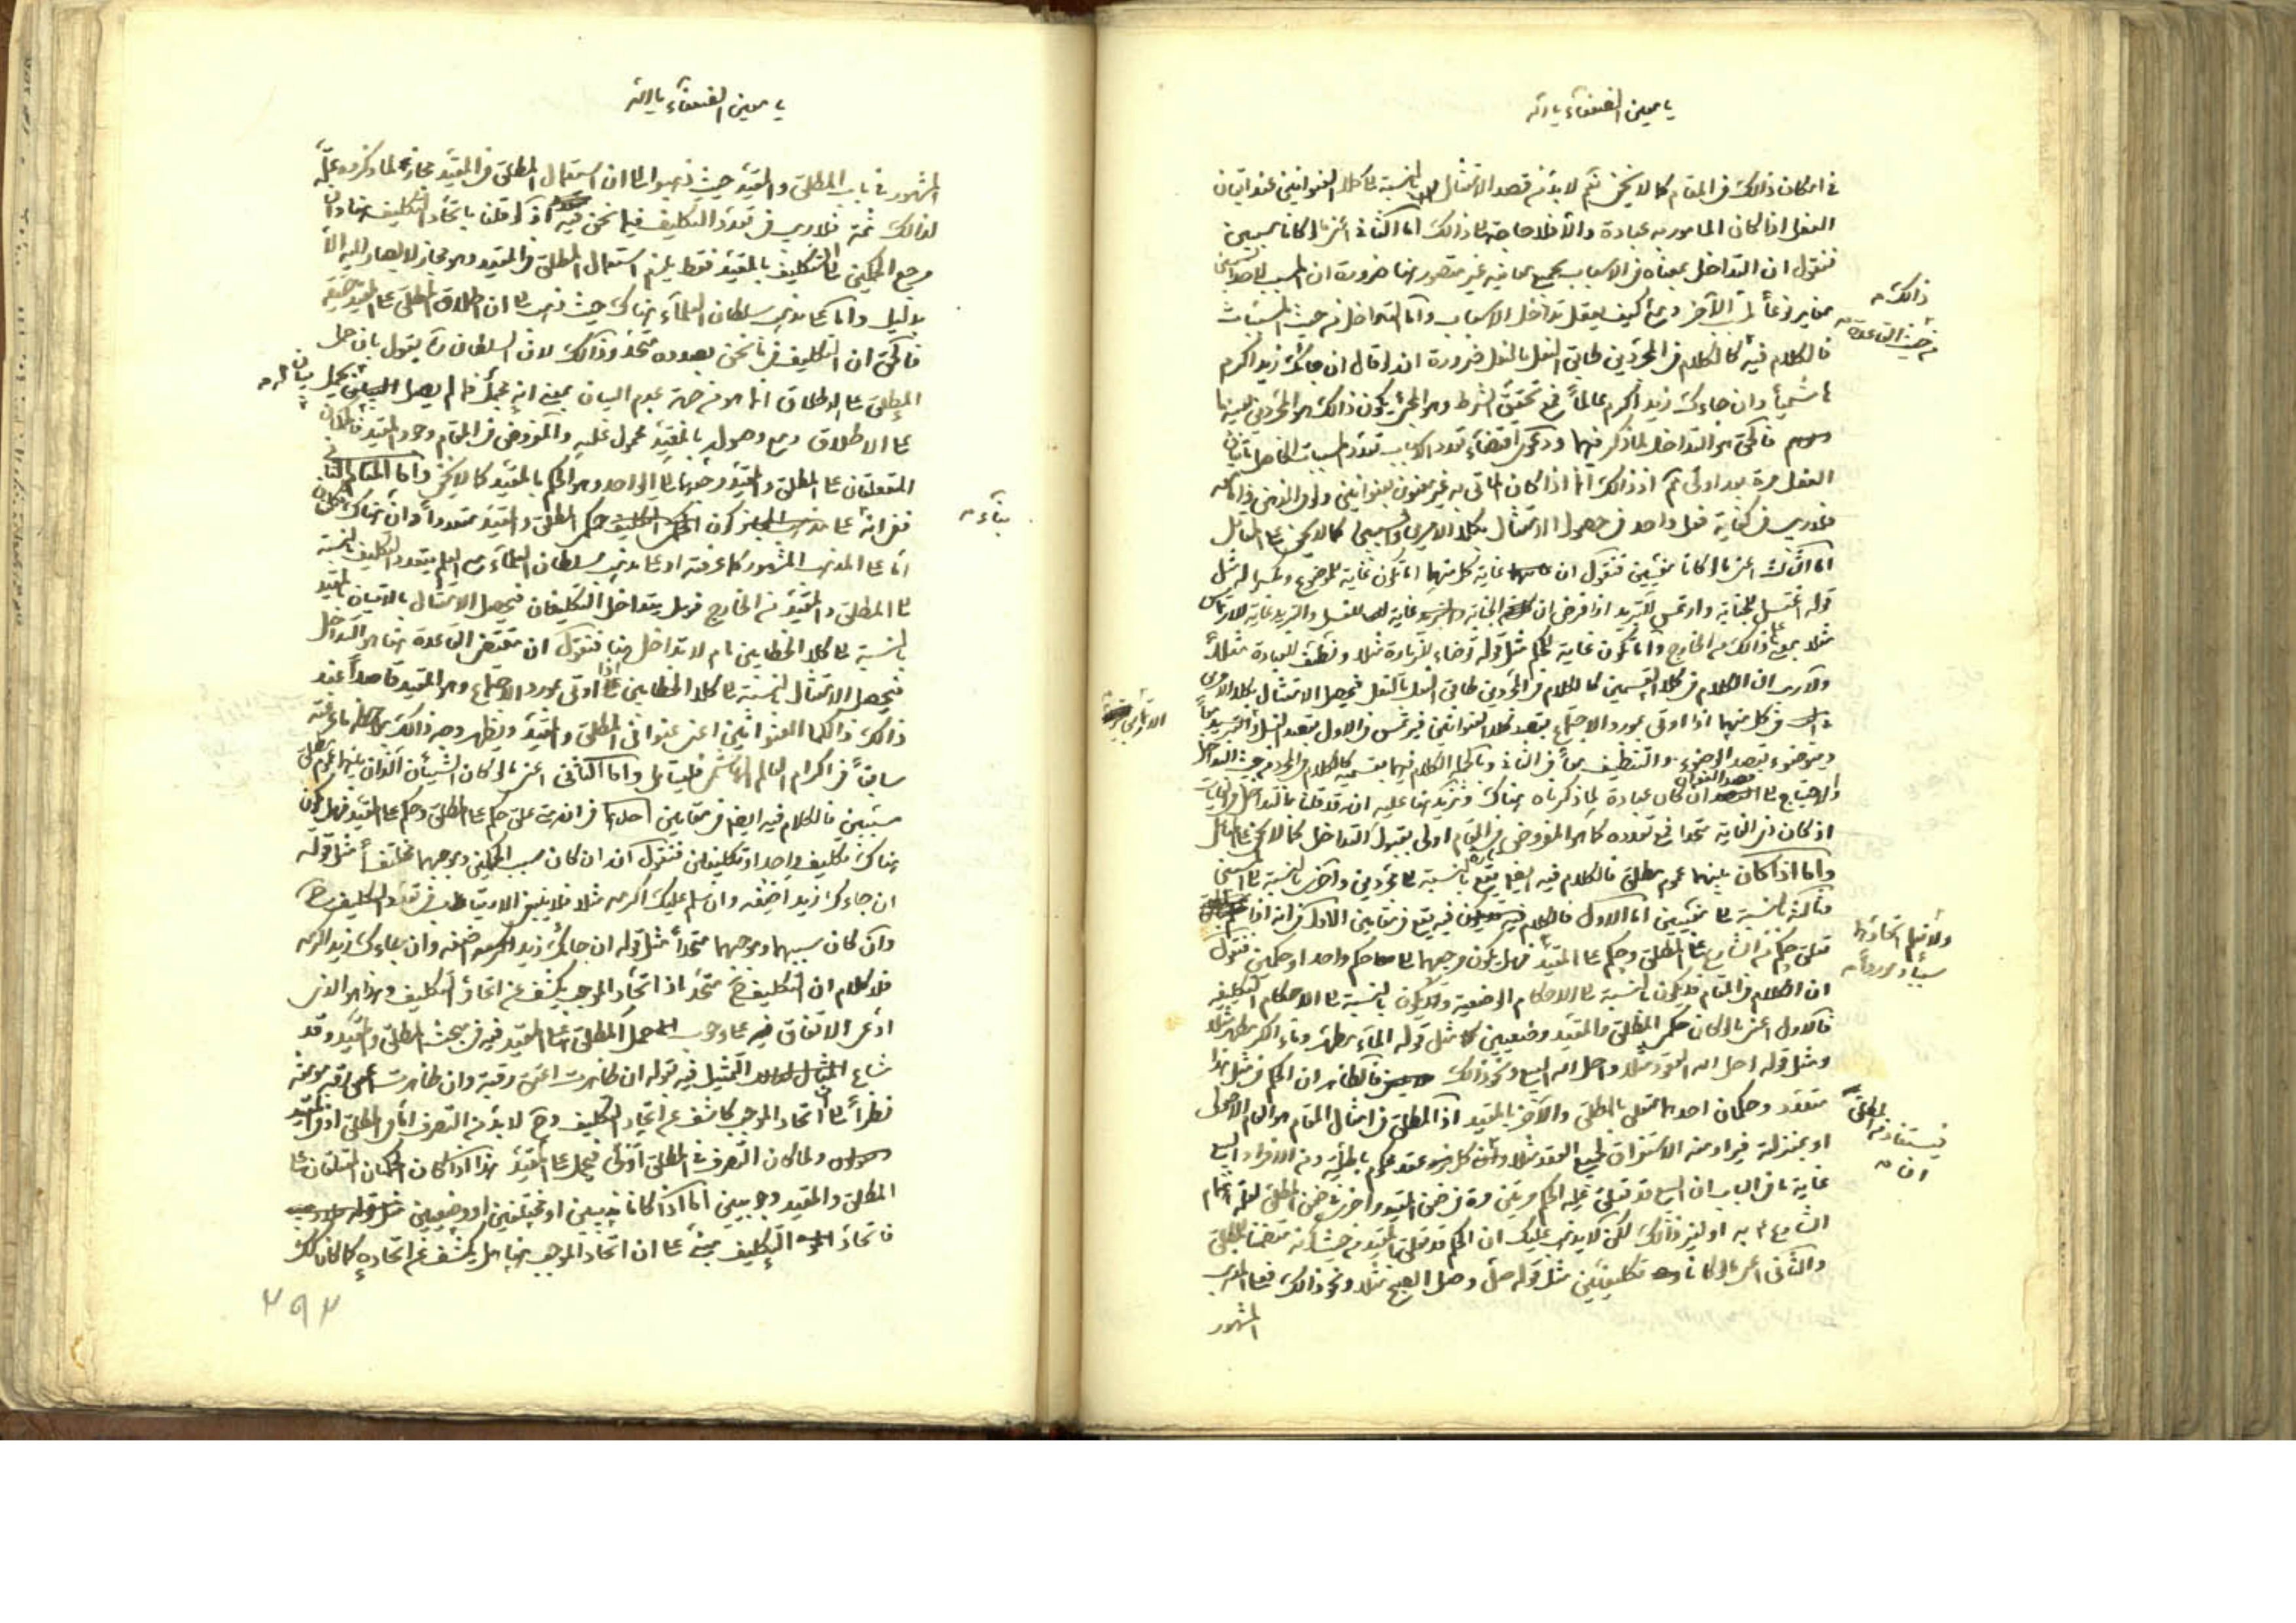 يا معين الضعفاء يا الله
في امكان ذلك في المقام كما لا يخفى نعم لا بد من قصد الامتثال بالنسبة الى كلا العنوانين عند اتيان
الفعل اذا كان المامور به عبادة والا فلا حاجة الى ذلك اما الثاني اعني ما لو كانا سببين
فنقول ان التداخل بمعناه في الاسباب بجميع معانيه غير متصور هنا ضرورة ان المسبب لاحد السببين
مغاير نوعا لمسبب الآخر ومعه كيف يعقل تداخل الاسباب واما التداخل من حيث المسببات
ذلك
من حيث القاعدة
فالكلام فيه كالكلام في المجردين طابق النعل بالنعل ضرورة انه لو قال ان جائك زيد اكرم
شيئا وان جاءك زيد اكرم عالما فمع تحقق الشرط وهو المجيء يكون ذلك هو المجردين بعينها
فالحق هو التداخل لما ذكر فيهما ودعوى اقتضاء تعدد الاسباب تعدد المسببات
الفعل مرة بعد اولى ثم اذ ذلك انما اذا كان الماتي به غير معنون بعنوانين
فلا ريب في كفاية فعل واحد في حصول الامتثال بكلا الامرين كما لا يخفى على المتامل
اما الثالث اعني ما لو كانا مغيين فنقول ان غاية كل منهما اما تكون غاية للموضوع مثل
قوله اغتسل للجنابة وارتمس للتبريد اذا فرض ان الجنابة غاية للغسل والتبريد غاية للارتماس
مثلا بمعنى ذلك من الخارج واما تكون غاية للحكم مثل قوله توضاء للزيارة مثلا ونظف للعبادة مثلا
ولا ريب ان الكلام في كلا القسمين كالكلام في المجردين طابق النعل بالنعل فيحصل الامتثال بكلا الامرين
في كل منهما اذا اوتى بمورد الاجتماع بقصد كلا العنوانين فيرتمس في الاول بقصد الغسل والتبريد معا
الارتماسي
ويتوضوء بقصد الوضوء والتنظيف معا في الثاني وبالجملة الكلام فيهما بقسميه كالكلام في المجرد من حيث التداخل
والاحتياج الى قصد العنوان ان كان عبادة لما ذكرناه هناك ونزيد هنا عليه انه قد قلنا بالتداخل في الغايات
اذ كان ذو الغاية متحدا فمع تعدده كما هو المفروض في المقام اولى بقبول التداخل كما لا يخفى على المتامل
واما اذا كان بينهما عموم مطلق فالكلام فيه ايضا يقع تارة بالنسبة الى مجردين واخرى بالنسبة الى المسببين
وثالثة بالنسبة الى مغيين اما الاول فالكلام فيه يقع في مقامين الاول في انه اذا
ولا نعلم اتحادهما
سببا وموردا
تعلق حكم من الشارع على المطلق وحكم على المقيد فهل يكون مرجعهما الى حكم واحد او حكمين فنقول
ان الكلام في المقام قد يكون بالنسبة الى الاحكام الوضعية وقد يكون بالنسبة الى الاحكام التكليفية
فالاول اعني ما لو كان حكم المطلق والمقيد وضعيين كما مثل قوله الماء مطهر وماء الكر مطهر مثلا
ومثل قوله احل الله العقود مثلا واحل الله البيع ونحو ذلك فالظاهر ان الحكم في مثل هذا
متعدد وحكمان احدهما تعلق بالمطلق والآخر بالمقيد اذ المطلق في امثال المقام هو العام الاصولي
او بمنزلته فيراد منه الاستغراق لجميع العقود مثلا كل عقد محكوم بالحلية ومن الافراد البيع
فيستفاد من المطلق
ان
غاية ما في الباب ان البيع قد تعلق عليه الحكم مرتين مرة في ضمن المقيد واخرى في ضمن المطلق لعله اهتمام
الشارع به او لغير ذلك لكن لا يذهب عليك ان الحكم قد تعلق بالمقيد من حيث كونه متضمنا للمطلق
والثاني اعني ما لو كانا تكليفيين مثل قوله صل وصل الصبح مثلا ونحو ذلك فعلى المذهب
المشهور
يا معين الضعفاء يا الله
المشهور في باب المطلق والمقيد حيث ذهبوا الى ان استعمال المطلق في المقيد مجاز لما ذكروه علة
لذلك ثمة فلا ريب في تعدد التكليف فيما نحن فيه اذ لو قلنا باتحاد التكليف هنا وان
مرجع الحكمين الى التكليف بالمقيد فقط يلزم استعمال المطلق في المقيد وهو مجاز لا يصار اليه الا
بدليل واما على مذهب سلطان العلماء هناك حيث ذهب الى ان اطلاق المطلق على المقيد حقيقة
فالحق ان التكليف في ما نحن بصدده متحد وذلك لان السلطان يقول بان حمل
المطلق على الاطلاق انما هو من جهة عدم البيان بمعنى انه مجمل فما لم يصل بيان له يحمل
على الاطلاق ومع وصوله بالمقيد محمول عليه والمفروض في المقام وجود المقيد فالحكمان
المتعلقان على المطلق والمقيد مرجعهما الى الواحد وهو الحكم بالمقيد كما لا يخفى واما المقام الثاني
ففي انه على كون حكم المطلق والمقيد متعددا وان هناك حكمان
بناء
اما على المذهب المشهور كما عرفته او على مذهب سلطان العلماء مع العلم بتعدد التكليف بالنسبة
الى المطلق والمقيد من الخارج فهل يتداخل التكليفان فيحصل الامتثال بالاتيان بالمقيد
بالنسبة الى كلا الخطابين ام لا تداخل هنا فنقول ان مقتضى القاعدة هنا هو التداخل
فيحصل الامتثال بالنسبة الى كلا الخطابين اذا اوتى بمورد الاجتماع وهو المقيد قاصدا عند
ذلك كلا العنوانين اعني عنواني المطلق والمقيد ويظهر وجه ذلك مما عرفته
سابقا في اكرام العالم الهاشمي فليتامل واما الثاني اعني ما لو كان الشيئان اللذان بينهما عموم مطلق
مسببين فالكلام فيه ايضا في مقامين احدهما في انه متى علق حكم على المطلق وحكم على المقيد فهل يكون
هناك تكليف واحد او تكليفان فنقول انه ان كان سبب الحكمين وموجبهما مختلفا مثل قوله
ان جاءك زيد اضفه وان سلم عليك اكرمه مثلا فلا ينبغي الارتياب في تعدد التكليف
وان كان سببهما وموجبهما متحدا مثل قوله ان جائك زيد اضفه وان جاءك زيد اكرمه
فلا كلام ان التكليف ح متحد اذ اتحاد الموجب يكشف عن اتحاد التكليف وهذا هو الذي
ادعى الاتفاق فيه على وجوب حمل المطلق على المقيد فيه في مبحث المطلق والمقيد وقد
شاع التمثيل فيه بقوله ان ظاهرت اعتق رقبة وان ظاهرت اعتق رقبة مؤمنة
نظرا الى ان اتحاد الموجب كاشف عن اتحاد التكليف وح لا بد من التصرف اما في المطلق او في المقيد
ولما كان التصرف في المطلق اولى فيحمل على المقيد هذا اذا كان الحكمان المتعلقان على
المطلق والمقيد وجوبيين اما اذا كانا ندبيين او مختلفين او وضعيين
فاتحاد التكليف مبني على ان اتحاد الموجب هنا هل يكشف عن اتحاده كما كان كك
٢٩٢